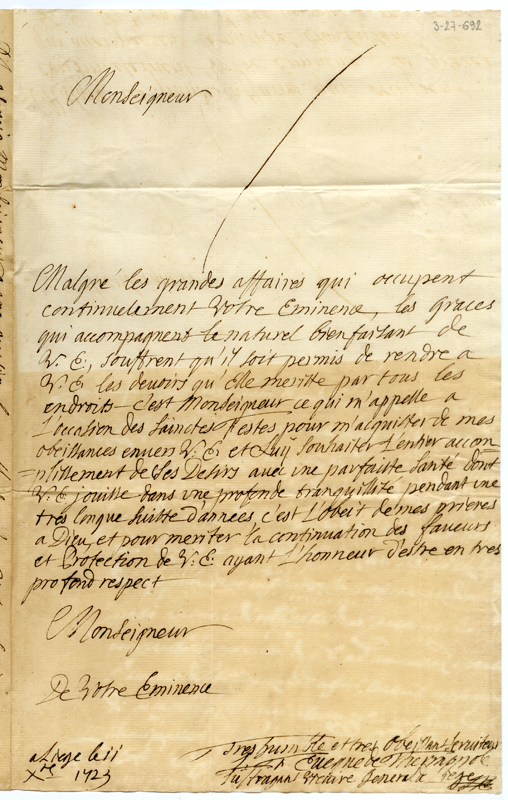 3-27-692
Monseigneur
Malgré les grandes affaires qui occupent
continuelement Votre Eminence, les graces
qui accompagnent le naturel bienfaisant de
V. E, souffrent qu'il soit permis de rendre a
V. E les devoirs qu'Elle meritte par tous les
endroits c'est Monseigneur ce qui m'appelle a
L'occasion des Sainctes Festes pour m'acquitter de mes
obeissances envers V. E et Luy souhaitter L'entier accom
plissement de Ses Desirs avec une parfaite Santé dont
V. E jouisse dans une profonde tranquillité pendant une
tres longue suitte d'années, c'est L'obiet de mes prieres
a Dieu, et pour meriter la continuation des faveurs
et Protection de V. E. ayant L'honneur d'estre en tres
profond respect
Monseigneur
De Votre Eminence
Tres humble et tres Obeissant Serviteur
a Liege le 11
Xre 1723